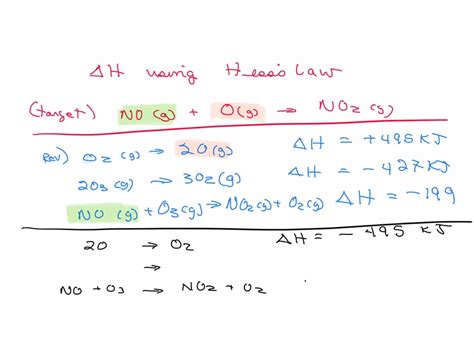 ΔH using Hess's Law
(target) NO(g) + O(g) → NO₂(g)
Rev) O₂(g) → 2O(g) ΔH = +495 KJ
2O₃(g) → 3O₂(g) ΔH = -427 KJ
NO(g) + O₃(g) → NO₂(g) + O₂(g) ΔH = -199
2O → O₂ ΔH = -495 KJ
→
NO + O₃ → NO₂ + O₂